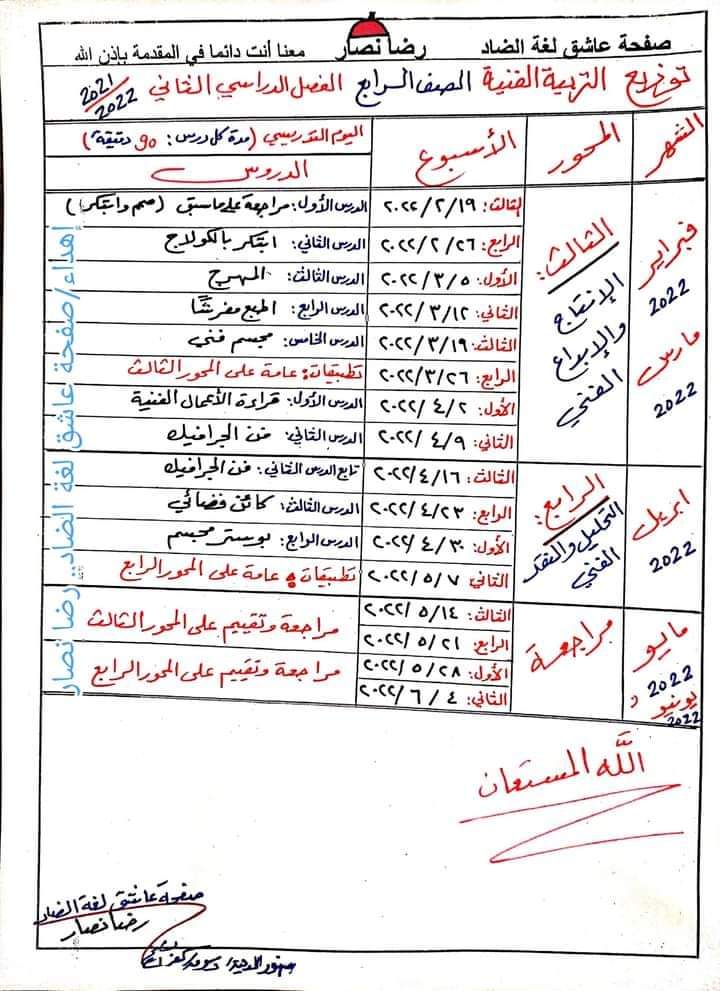 صفحة عاشق لغة الضاد رضا نصار معنا أنت دائما في المقدمة بإذن الله
توزيع التربية الفنية الصف الرابع الفصل الدراسي الثاني 2021/2022
الشهر المحور الأسبوع اليوم التدريسي (مدة كل درس: ٩٠ دقيقة)
الدروس
فبراير 2022
مارس 2022
الثالث:
الإنتاج
والإبداع
الفني
الثالث: ٢٠٢٢/٢/١٩ الدرس الأول: مراجعة على ماسبق (صمم وابتكر)
الرابع: ٢٠٢٢/٢/٢٦ الدرس الثاني: ابتكر بالكولاج
الأول: ٢٠٢٢/٣/٥ الدرس الثالث: المهرج
الثاني: ٢٠٢٢/٣/١٢ الدرس الرابع: اطبع مفرشنا
الثالث: ٢٠٢٢/٣/١٩ الدرس الخامس: مجسم فني
الرابع: ٢٠٢٢/٣/٢٦ تطبيقات: عامة على المحور الثالث
الأول: ٢٠٢٢/٤/٢ الدرس الأول: قراءة الأعمال الفنية
الثاني: ٢٠٢٢/٤/٩ الدرس الثاني: فن الجرافيك
ابريل 2022
الرابع:
التحليل والنقد
الفني
الثالث: ٢٠٢٢/٤/١٦ تابع الدرس الثاني: فن الجرافيك
الرابع: ٢٠٢٢/٤/٢٣ الدرس الثالث: كائن فضائي
الأول: ٢٠٢٢/٤/٣٠ الدرس الرابع: بوستر مجسم
الثاني: ٢٠٢٢/٥/٧ تطبيقات: عامة على المحور الرابع
مايو 2022
و يونيو 2022
مراجعة
الثالث: ٢٠٢٢/٥/١٤ مراجعة وتقييم على المحور الثالث
الرابع: ٢٠٢٢/٥/٢١
الأول: ٢٠٢٢/٥/٢٨ مراجعة وتقييم على المحور الرابع
الثاني: ٢٠٢٢/٦/٤
إهداء/صفحة عاشق لغة الضاد.. رضا نصار
الله المستعان
صفحة عاشق لغة الضاد
رضا نصار